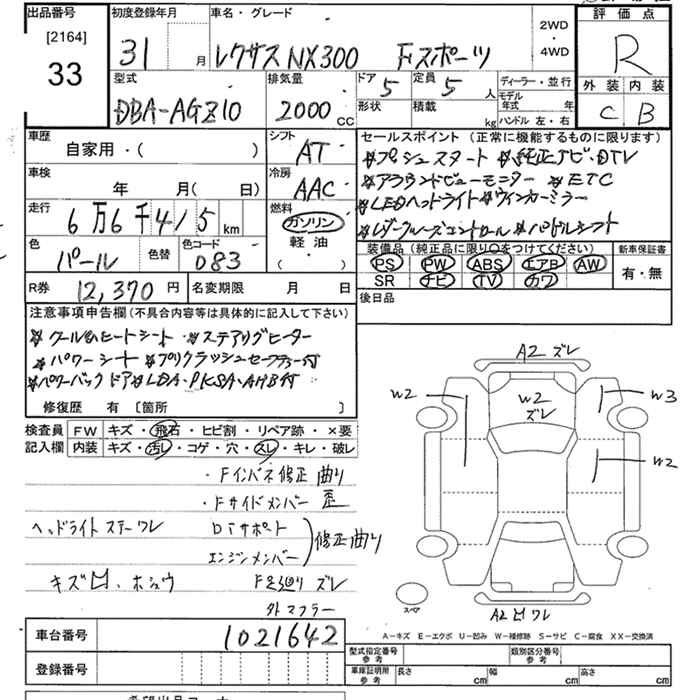 出品番号 初度登録年月 車名・グレード 2WD ・ 4WD 評価点
[2164]
33 31 月 レクサス NX300 Fスポーツ R
型式 排気量 ドア 定員 ディーラー・並行 外装 内装
DBA-AGZ10 2000 CC 5 5 人 モデル年式 年 C B
形状 積載 kg ハンドル 左・右
車歴 シフト セールスポイント (正常に機能するものに限ります)
自家用・( ) AT
※プッシュスタート ※純正ナビ・DTV
車検 冷房
年 月( 日) AAC
※アラウンドビューモニター ※ETC
※LEDヘッドライト ※ウインカーミラー
走行 燃料
6万6千415 km ガソリン
軽油
( )
※レダークルーズコントロール ※パドルシフト
色 色替 色コード
パール 083
装備品(純正品に限り○をつけてください) 新車保証書
PS PW ABS エアB AW 有・無
SR ナビ TV カワ
R券 12,370 円 名変期限 月 日 後日品
注意事項申告欄(不具合内容等は具体的に記入して下さい)
※クール&ヒートシート ※ステアリングヒーター
※パワーシート ※プリクラッシュセーフティー付
※パワーバックドア ※LDA・PKSA・AHB付
修復歴 有 [箇所 ]
検査員 FW キズ・飛石・ヒビ割・リペア跡・×要
記入欄 内装 キズ・汚レ・コゲ・穴・スレ・キレ・破レ
・Fインパネ修正 曲り
・Fサイドメンバー 歪
ヘッドライトステーワレ Dアサポート
エンジンメンバー 修正曲り
キズ凹、ホシュウ F足廻り ズレ
外マフラー
A2 ズレ
W2 W2 ズレ W3
W2
スペア
A2凹ワレ
A-キズ E-エクボ U-凹み W-補修跡 S-サビ C-腐食 XX-交換済
車台番号 1021642
型式指定番号 参考 類別区分番号 参考
登録番号 車庫証明所 参考 長さ cm 幅 cm 高さ cm